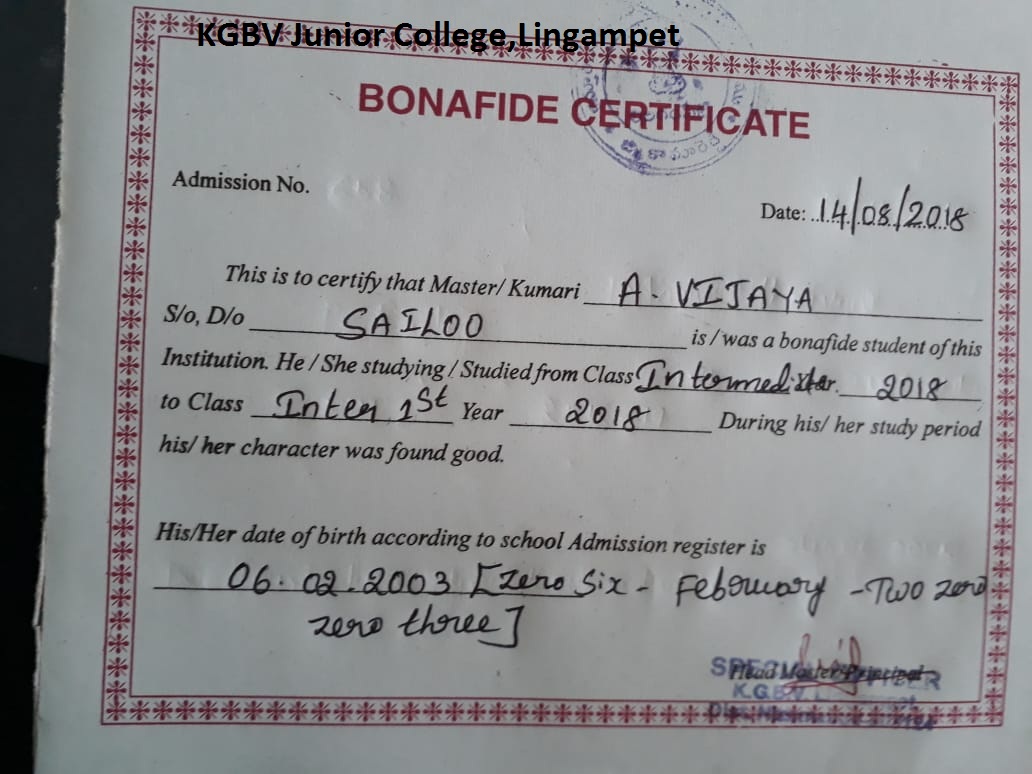 KGBV Junior College,Lingampet
BONAFIDE CERTIFICATE
Admission No.
Date: 14/08/2018
This is to certify that Master/ Kumari A. VIJAYA
S/o, D/o SAILOO is / was a bonafide student of this
Institution. He / She studying / Studied from Class Intermediate 2018
to Class Inter 1st Year 2018 During his/ her study period
his/ her character was found good.
His/Her date of birth according to school Admission register is
06.02.2003 [Zero Six - February - Two zero
zero three]
Head Master/Principal
K.G.B.V